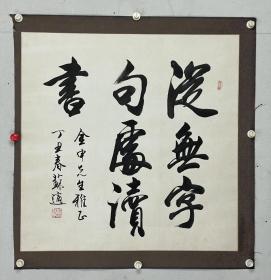 從無字
句處讀
書
金中先生雅正
丁丑春蘇適